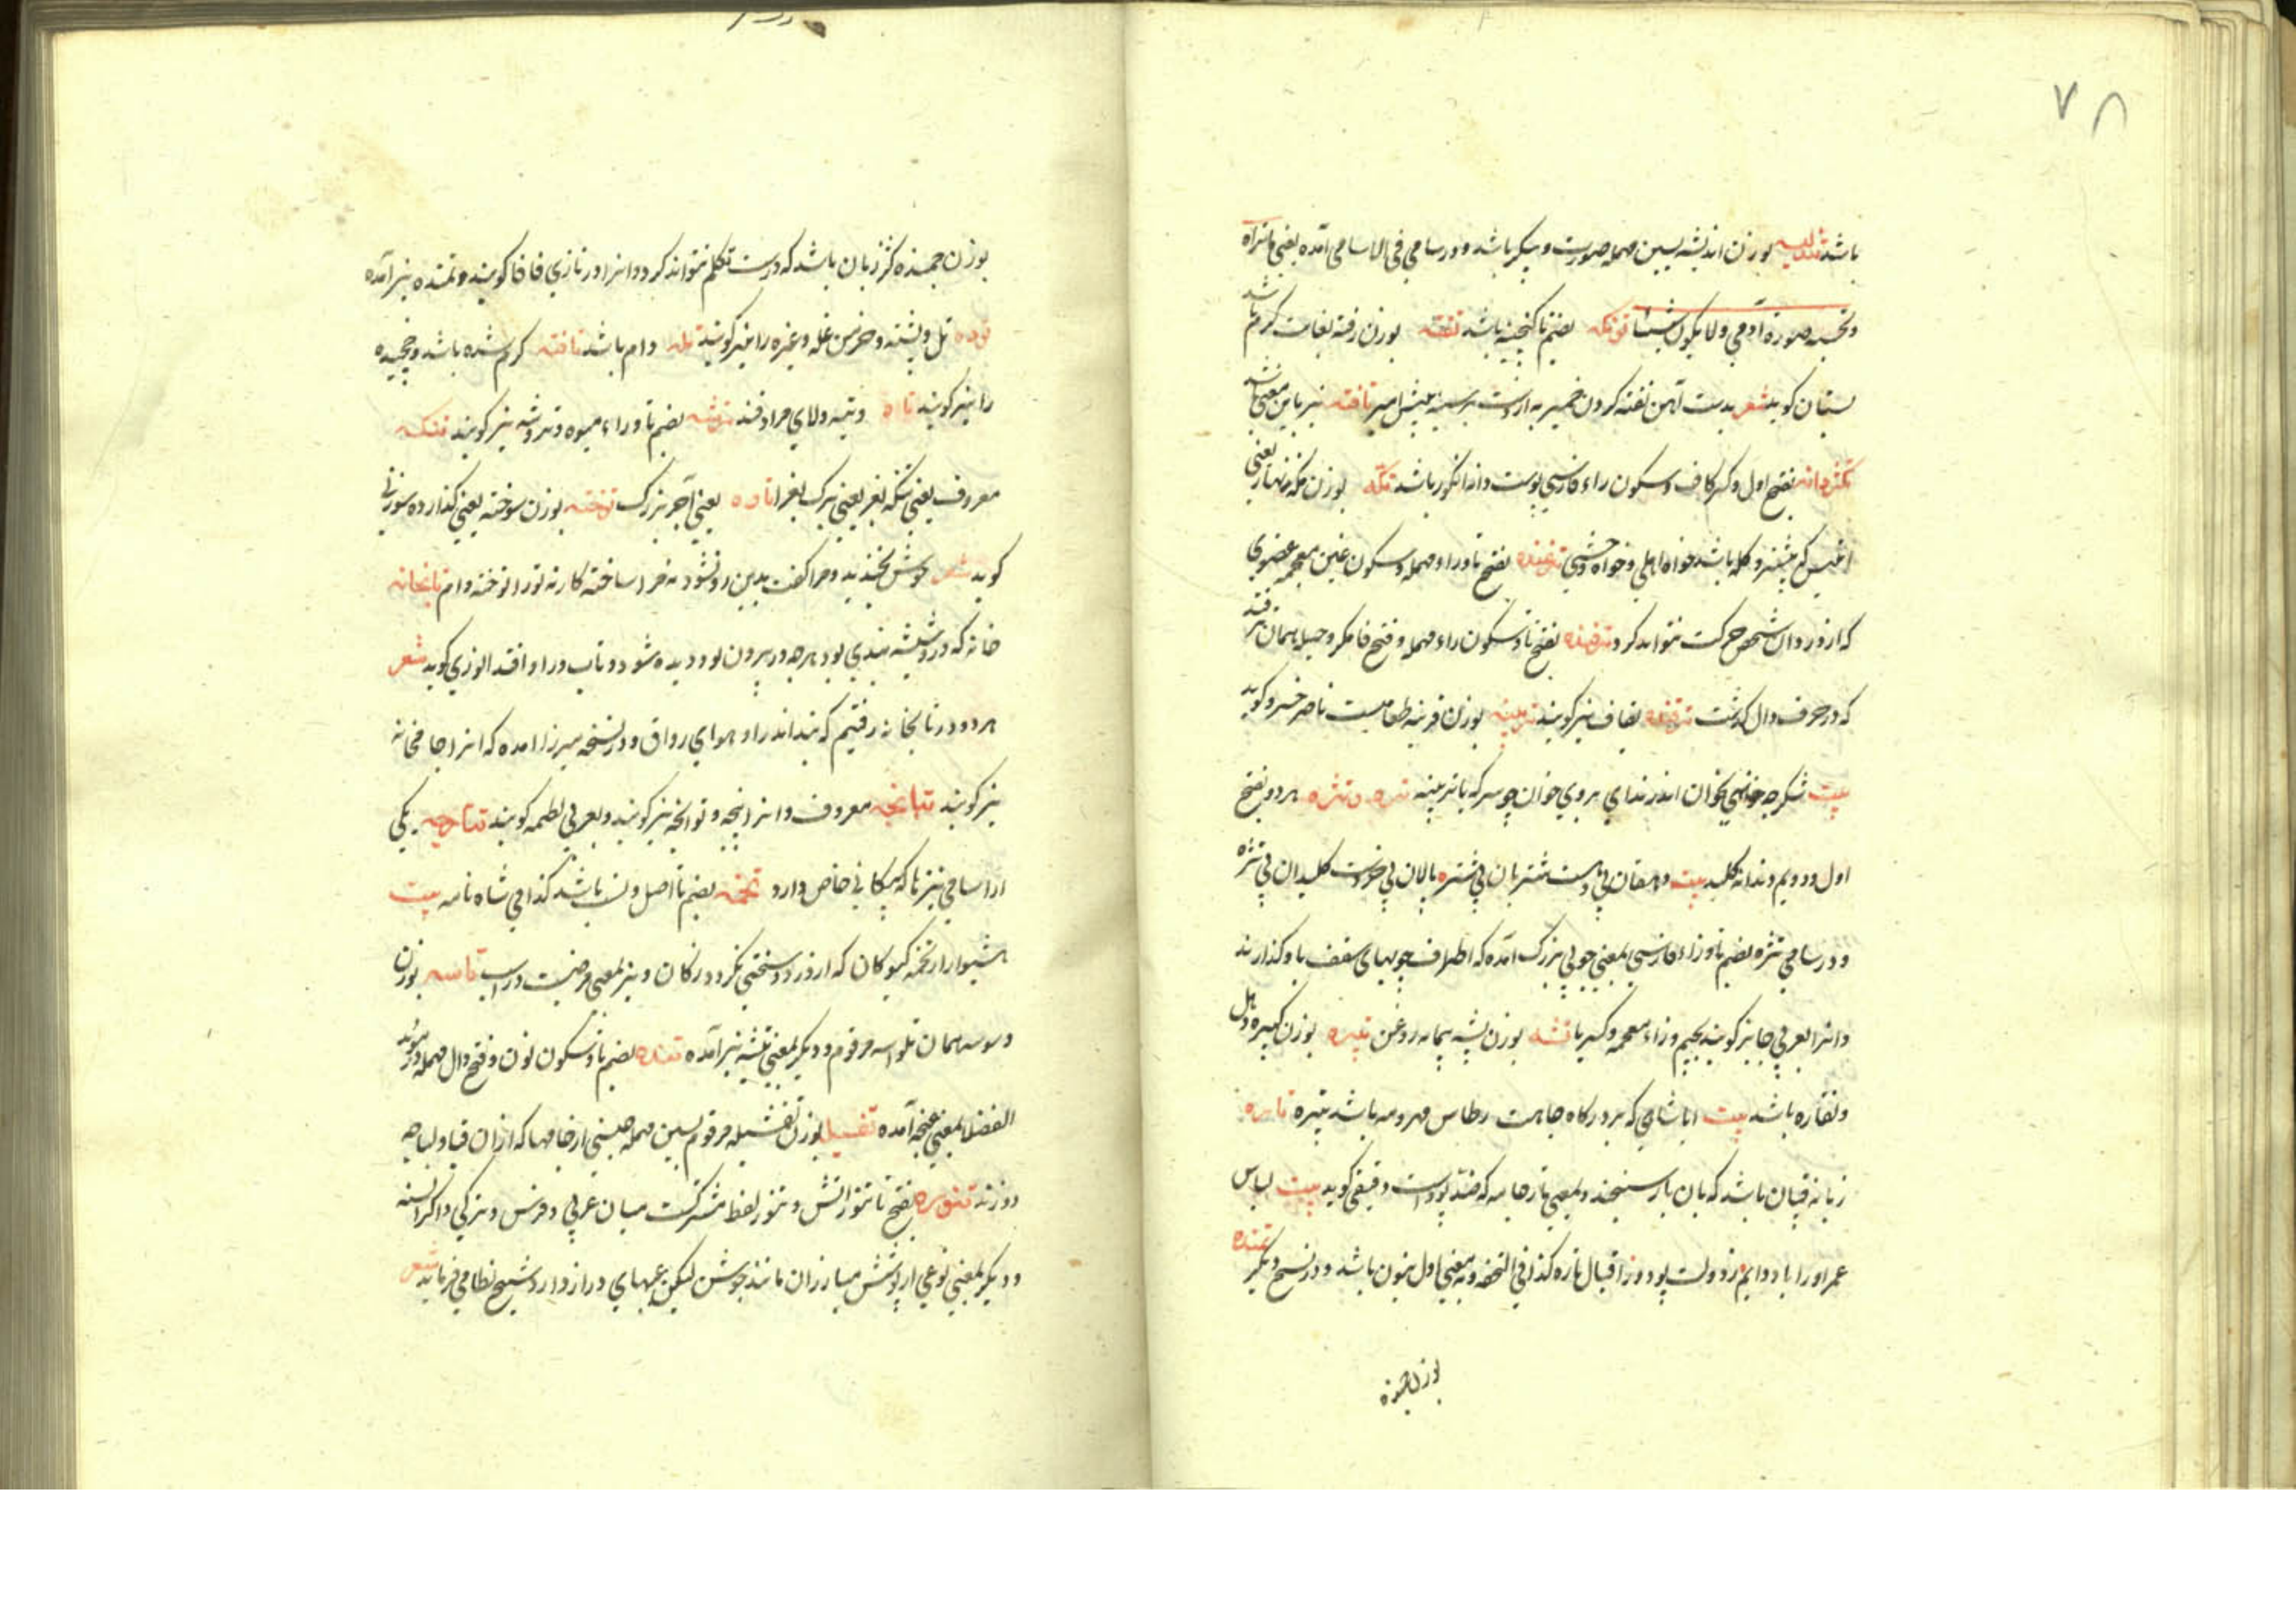 ۷۸
باشد تندیسه بوزن اندیشه بسین مهمله صورت و پیکر باشد و در سامی فی الاسامی آمده یعنی مانند
و تخته صورة آدمی ولا یکون شیئا تونکه بضم تا گنجینه باشد تفته بوزن رفته بغایت گرم باشد
بستان گوید شعر بدست آهن تفته کردن خمیر به از دست بر سینه پیش امیر تافته نیز باین معنی باشد
تکژدانه بفتح اول و کسر کاف و سکون راء فارسی پوست دانه انگور باشد تکه بوزن مکه نهاز یعنی
آنکه پیش رو گله باشد خواه اهلی و خواه وحشی ترغنده بفتح تا و راء مهمله و سکون غین معجمه عضوی
که از درد آن شخص حرکت نتواند کرد ترفنده بفتح تا و سکون راء مهمله و فتح فا مکر و حیله همان ترفند
که در حرف دال گذشت ترقنده بقاف نیز گویند ترینه بوزن قرینه طعامیست ناصر خسرو گوید
بیت شکر چه نهی بخوان اندر نداری بروی خوان چو سرکه یا ترینه تزه و تژه هر دو بفتح
اول و دویم دندانه کلید بیت دهقان بی ده است شتربان بی شتر پالان بی خر است کلیدان بی تژه
و در سامی تژه بضم تا و زاء فارسی بمعنی چوبی بزرگ آمده که اطراف چوبهای سقف باو گذارند
و آنرا بعربی جایز گویند بجیم و زاء معجمه و کسر یا تشه بوزن پشه پیمانه روغن تبیره بوزن کبیره دهل
و نقاره باشد بیت ایا شاهی که بر درگاه جاهت رطاس مهر و مه باشد تبیره تاره
زبانه قپان باشد که بان بار سنجند و بمعنی تار جامه که ضد پود است دقیقی گوید بیت لباس
عمر او را باد دایم ز دولت پود و ز اقبال تاره کذا فی التحفه و به معنی اول بنون باشد و در نسخ دیگر تمنده
بوزن جمنده
بوزن جمنده کژ زبان باشد که درست تکلم نتواند کرد و آنرا در تازی فافا گویند و تمنده نیز آمده
توده تل و پشته و خرمن غله و غیره را نیز گویند تله دام باشد تافته گرم شده باشد و پیچیده
را نیز گویند تاه و تیه ولای مرادفند ترشه بضم تا و راء میوه و تروشه نیز گویند تنکه
معروف یعنی تنکه بغر یعنی برک بغرا تاوه یعنی آجر بزرگ توخته بوزن سوخته یعنی گذارده سوزنی
گوید شعر خوش بخندید و مرا گفت بدین رو نشود نه مرا ساخته کار نه تورا توخته وام تابخانه
خانه که در او شیشه بندی بود هرچه در بیرون بود دیده شود و تاب در او افتد انوری گوید شعر
هر دو در تابخانه رفتیم که نبد اندر او هوای رواق و در نسخه میرزا آمده که آنرا جامخانه
نیز گویند تبانچه معروف و آنرا تپنچه و توانچه نیز گویند و بعربی لطمه گویند تتاجه یکی
از اسامی تیز تا که پیکانی خاص دارد تخمه بضم تا اصل و نسب باشد کذا فی شاه نامه بیت
هشیوار از تخمه گیوکان که از درد و سختی نگردد ژکان و نیز بمعنی مرضیست در اسب تاسه بوزن
وسوسه همان تلواسه مرقوم و دیگر بمعنی تیشه نیز آمده تنده بضم تا و سکون نون و فتح دال مهمله در مؤید
الفضلا بمعنی غنچه آمده تفسیله بوزن تفشیله مرقوم بسین مهمله جنسی از جامها که از آن قبا و لباچه
دوزند تنوره بفتح تا تنور آتش و تنور لفظ مشترکست میان عربی و فرس و ترکی و اکراد
و دیگر بمعنی نوعی از پوشش مبارزان مانند جوشن لیکن غیبهای دراز دارد شیخ نظامی فرماید شعر